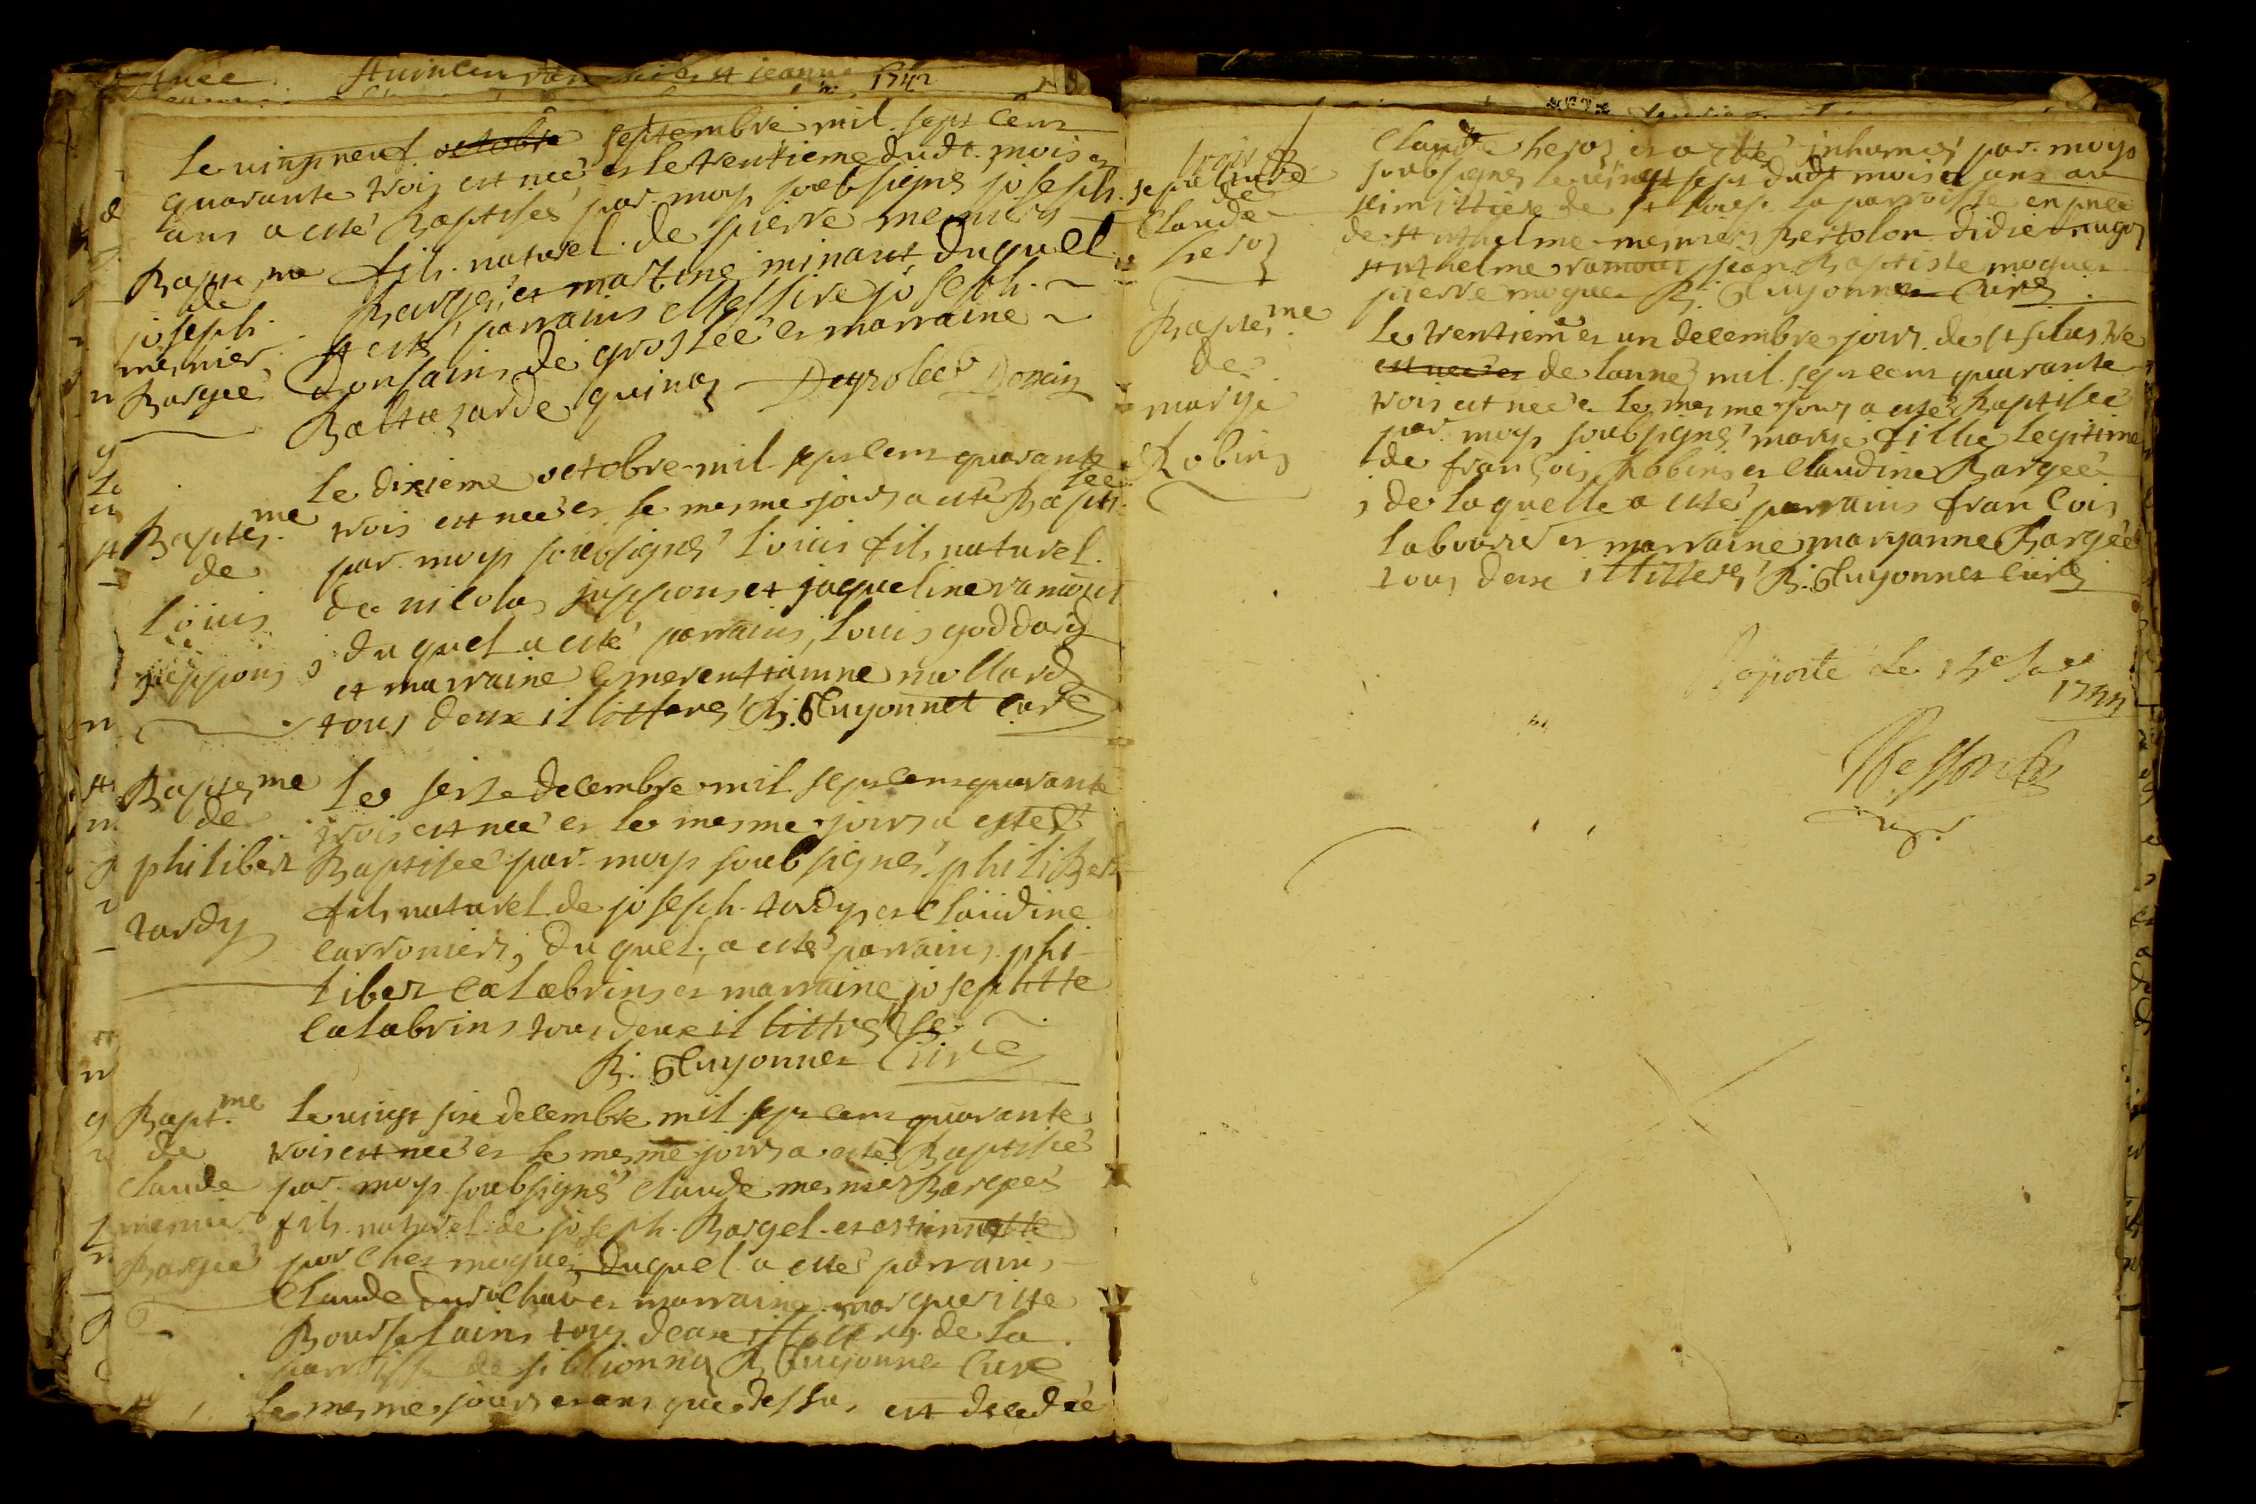 1742
Le vingt neuf octobre septembre mil sept cens
quarante trois est neé et le trentieme dudt. mois et
ans a esté Baptisés par moy soubsignes joseph
fils naturel de pierre mesnier
Bargé, et martine minaut duquel
a esté parrains Messire joseph
de groslée et marraine
Baltazarde quinoz
Baptesme
de
joseph
mesnier
Bargeé
Le dixieme octobre mil sept cens quarante
trois est neé et le mesme jours a esté Baptisée
par moy soubsignes Loüis fils naturel
de nicolas juppons et jaqueline ramout
duquel a esté parrains, Loüis goddard
et marraine emerentianne mollard
tous deux illitteres B. Guyonnet Curé
Baptesme
de
Loüis
juppons
Le seize decembre mil sept cens quarante
trois est neé et le mesme jours a esté
Baptisée par moy soubsignes philiber
fils naturel de joseph tardy et Claudine
carronier, duquel, a esté parrains phi
liber Calabrins et marraine josephtte
Calabrins tous deux illittres
B. Guyonnet Curé
Baptesme
de
philiber
tardy
Le vingt six decembre mil sept cens quarante
trois est neé et le mesme jours a esté Baptisée
par moy soubsigné Claude mesnier Bargeé
fils naturel de joseph Bargel et estiennette
porcher moquet, duquel a esté parrain
Claude et marraine marguerite
tous deux de la
parroisse de B Guyonnet Curé
Le mesme jours et ans que dessus est decedée
Bapt.me
de
Claude
mesnier
Bargeé
Claude heroz et a esté inhumés par moy
soubsignes le vingt sept dudt mois et ans au
simittiere de la parroisse en pnce
de anthelme mesniers Bertolon didier
anthelme ramout jean Baptiste moquet
pierre moquet B. Guyonnet Curé
sepulture
de
Claude
heroz
Le trentieme et un decembre jours de st silvestre
est neé et de lanneé mil sept cens quarante
trois est neé et le mesme jours a esté Baptisée
par moy soubsignes marie fillie legitime
de françois Robins et Claudine Bargeé
de laquelle a esté parrains françois
labourier et marraine maryanne Bargeé
tous deux illitteres B. Guyonnet Curé
Baptesme
de
marie
Robins